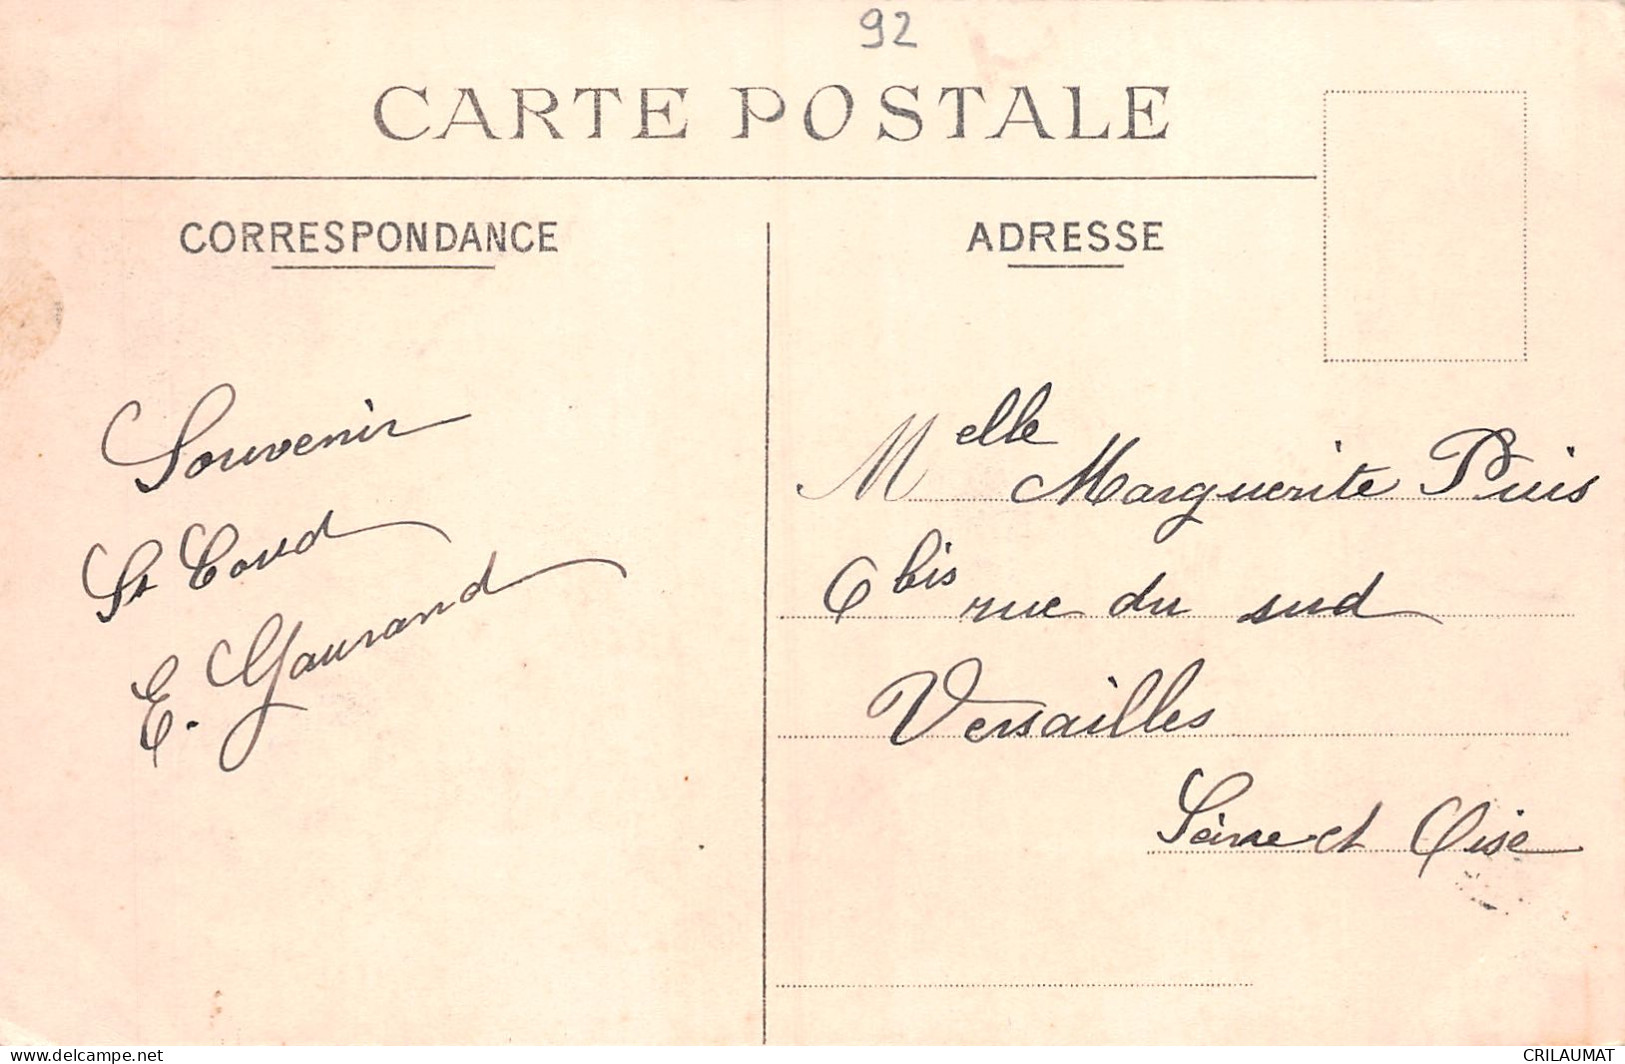 92
CARTE POSTALE
CORRESPONDANCE
ADRESSE
Souvenir
St Coud
E. Gaurand
Melle Marguerite Puis
6 bis rue du sud
Versailles
Seine et Oise
delcampe.net
CRILAUMAT